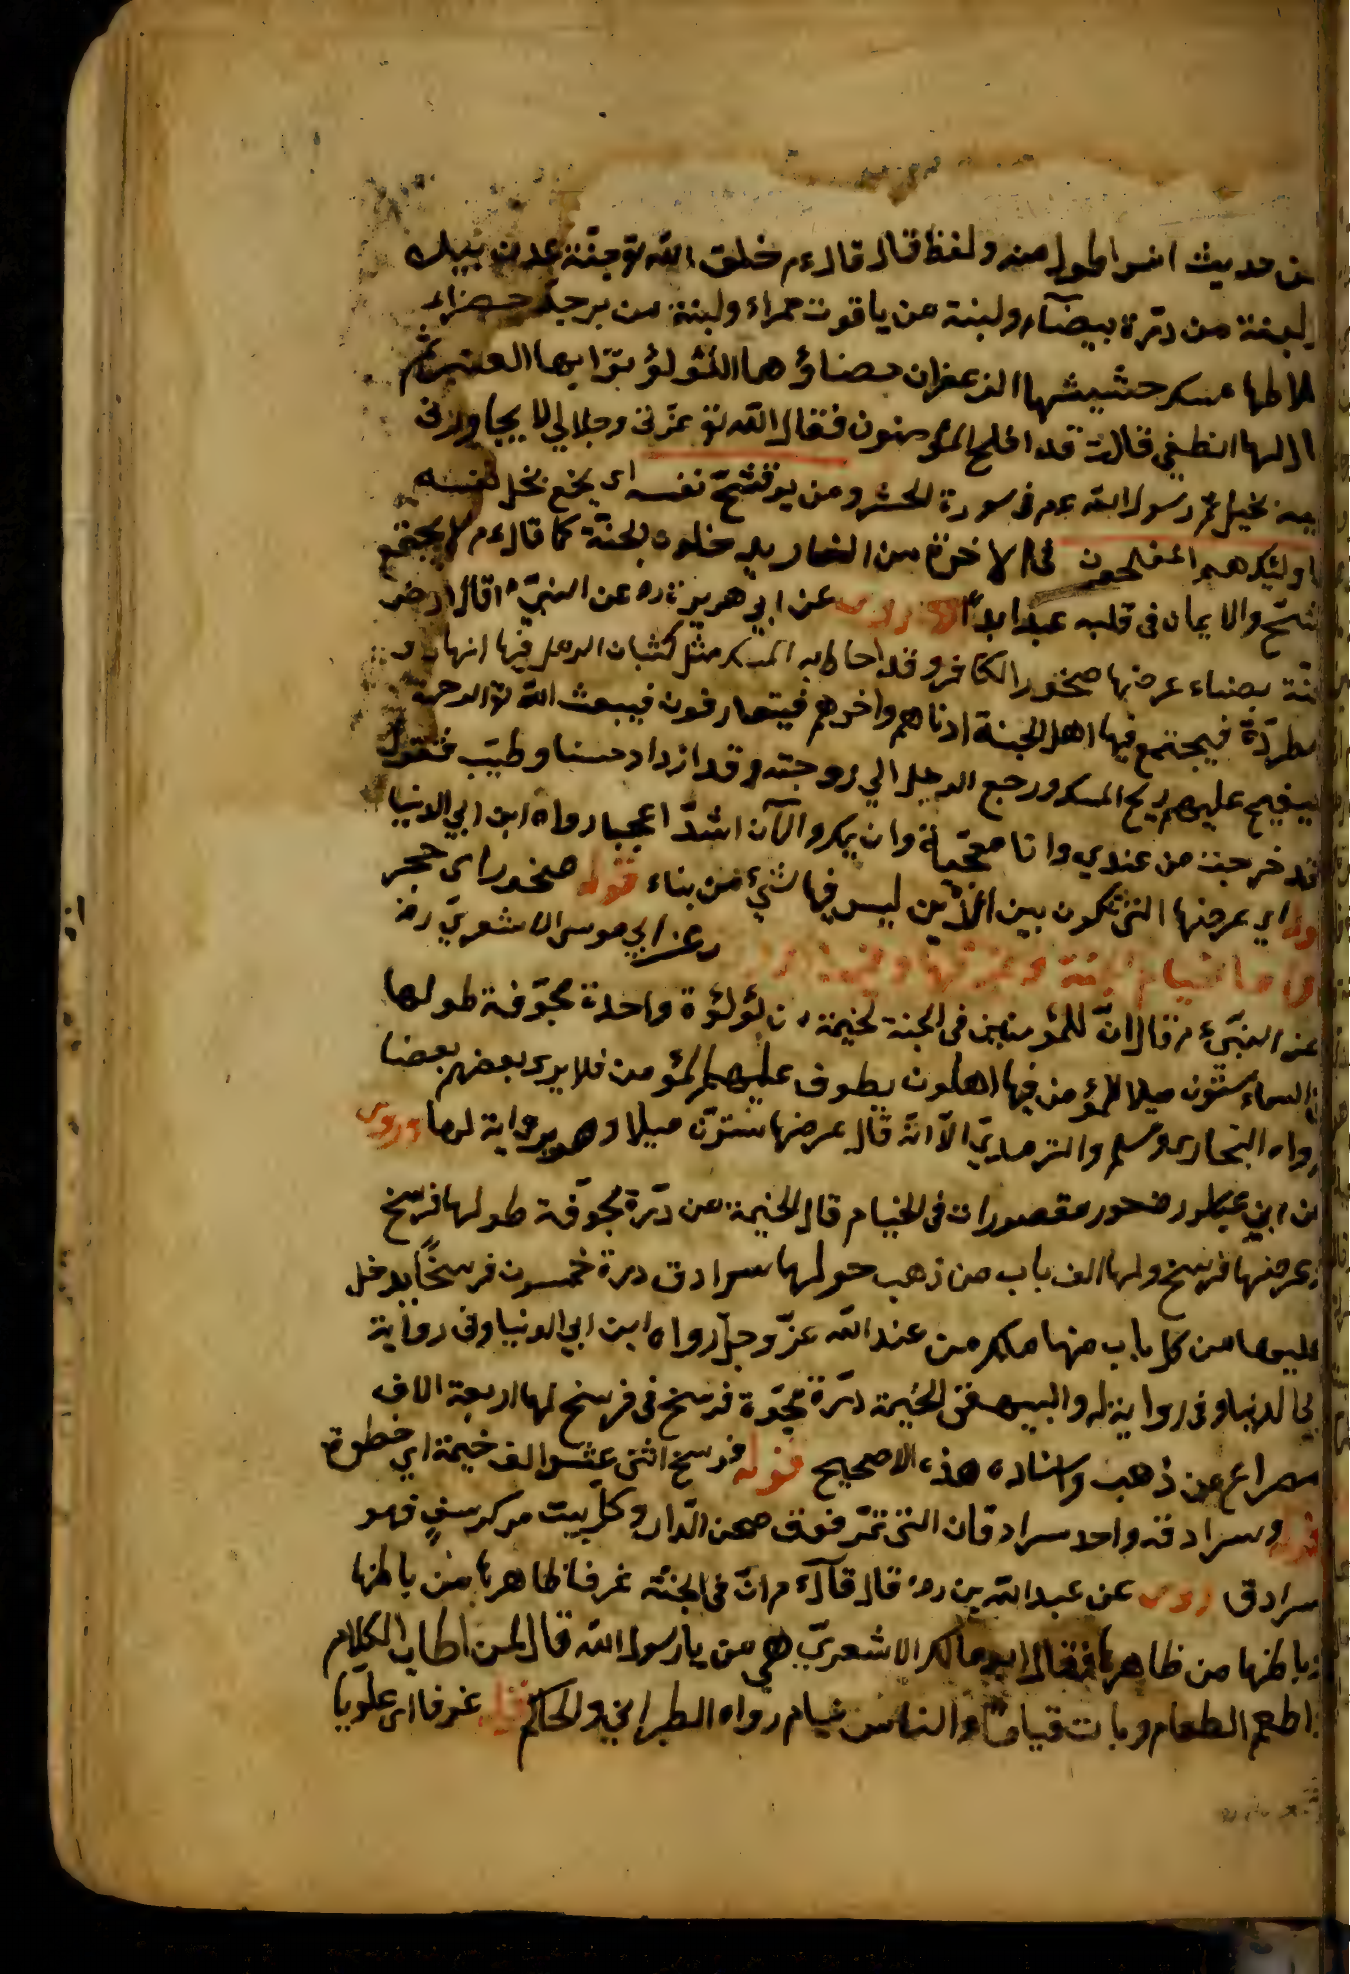 من حديث انس اطول منه ولفظ قال قال ءم خلق الله تع جنة عدن بيده
لبنة من درّة بيضآء ولبنة من ياقوت حمراء ولبنة من برجد خضراء
ملاطها مسك حشيشها الزعفران حصناؤ هما اللؤلؤ ترابها العنبر ثم
قال لها انطقي قالت قد افلح المؤمنون فقال الله تع عزّتى وجلالي لا يجاورنى
فيه بخيل ثم رسول الله عم فى سورة الحشر ومن يوق شحّ نفسه اى يخع بخل نفسه
اولئك هم المفلحون فى الاخرة من النار يدخلون الجنّة كما قال ءم لا يجتمع
شحّ والايمان فى قلبه عبد ابدًا روى عن ابي هريرة ره عن النبيّ ءم قال ارض
جنّة بيضاء عرضها صخور الكافر وقد احاط به المسك مثل كثبان الرمل فيها انهار و
مطرّدة فيجتمع فيها اهل الجنة ادناهم واخرهم فيتعارفون فيبعث الله تع الرحمة
فيفيح عليهم ريح المسك ورجع الرجل الي زوجته وقد ازداد حسنا وطيّب فتقول
قد خرجت من عندي وانا معجبة وان بك والآن اشدّ اعجبا رواه ابن ابي الدنيا
قوله اي عرضها التى تكون بين الذين ليس فيها شيء من بناء قوله صخور اى حجر
واما خيام الجنة وغرفها وعن ابي موسى الاشعريّ رض
عن النبيّ ءم قال انّ للمؤمنين فى الجنة لخيمة من لؤلؤة واحدة مجوّفة طولها
فى السماء ستّون ميلا للمؤمن فيها اهلون يطوف عليهم المؤمن فلا يرى بعضهم بعضا
رواه البخارى ومسلم والترمديّ الّا انّه قال عرضها ستّون ميلا وهو رواية لهما وروى
عن ابن عباس رض حور مقصورات فى الخيام قال الخيمة من درّة مجوّفة طولها فرسخ
وعرضها فرسخ ولها الف باب من ذهب حولها سرادق دورة خمسون فرسخًا يدخل
عليها من كل باب منها ملك من عند الله عزّ وجلّ رواه ابن ابي الدنيا وفى رواية
ابي الدنيا وفى رواية له والبيهقى الخيمة درّة مجوّفة فرسخ فى فرسخ لها اربعة الاف
مصراع من ذهب واسناده هذه الاصحيح قوله فرسخ اثنى عشر الف خيمة اي خطوة
قوله وسرادقه واحد سرادقان التى تمرّ فوق صحن الّدار وكلّ بيت من كرسف فهو
سرادق روى عن عبد الله بن ره قال قآل ءم انّ فى الجنّة غرفا ظاهرها من باطنها
وباطنها من ظاهرها فقال ابو مالك الاشعريّ هى من يا رسول الله قال لمن اطاب الكلام
واطعم الطعام وبات قياما والناس نيام رواه الطبراني والحاكم قوله غرفا اى علويّا